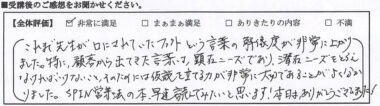 ■受講後のご感想をお聞かせください。
【全体評価】 ☑非常に満足 □まあまあ満足 □ありきたりの内容 □不満
これお先生が口にされていたファクトという言葉の解像度が非常に上がり
ました。特に、顧客から出てきた言葉は、顕在ニーズであり、潜在ニーズをとらえ
なければいけないこと、そのためには仮説を立てる力が非常に大切であることがよくわか
りました。SPIN営業法の本、早速読んでみたいと思います!本日はありがとうございました!